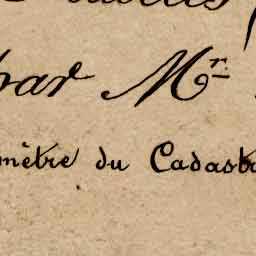 par Mr.
mètre du Cadastr